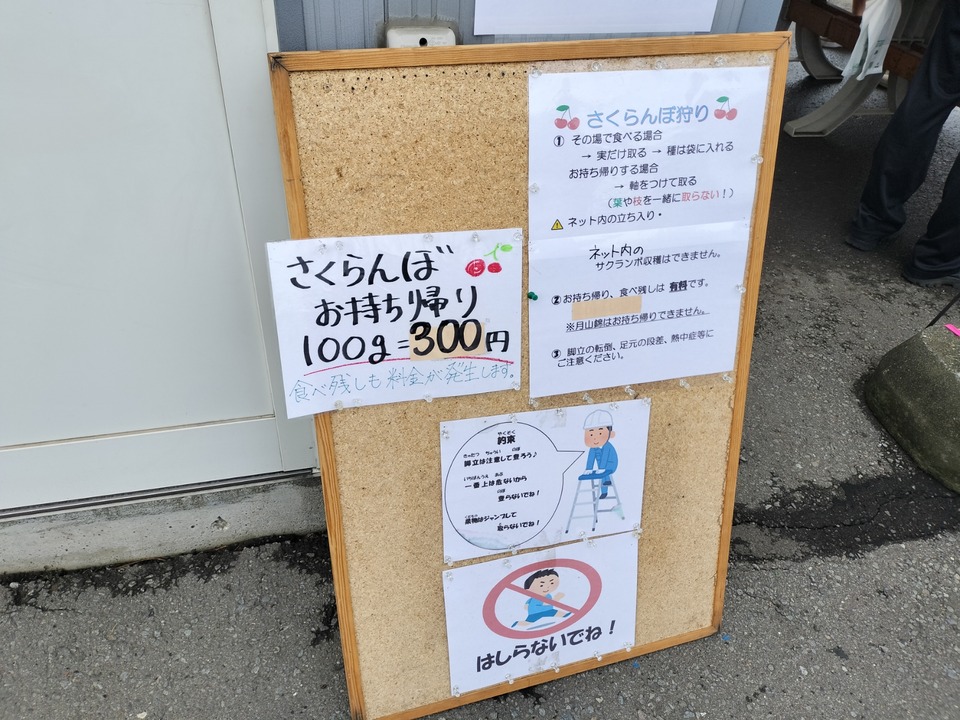 さくらんぼ
お持ち帰り
100g=300円
食べ残しも料金が発生します。
さくらんぼ狩り
① その場で食べる場合
→ 実だけ取る → 種は袋に入れる
お持ち帰りする場合
→ 軸をつけて取る
（葉や枝を一緒に取らない！）
ネット内の立ち入り・
ネット内の
サクランボ収穫はできません。
②お持ち帰り、食べ残しは 有料です。
※月山錦はお持ち帰りできません。
③ 脚立の転倒、足元の段差、熱中症等に
ご注意ください。
やくそく
約束
きゃたつ ちゅうい のぼ
脚立は注意して登ろう♪
いちばんうえ あぶ
一番上は危ないから
のぼ
登らないでね！
くだもの
果物はジャンプして
取らないでね！
はしらないでね！